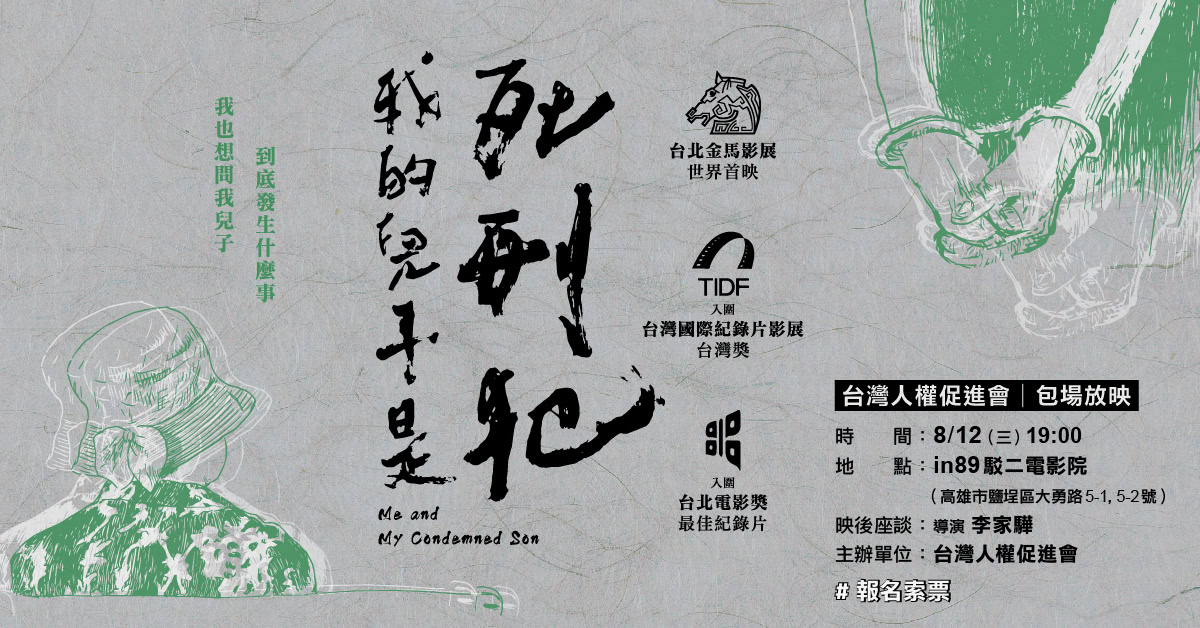 我也想問我兒子
到底發生什麼事
我的兒子是
死刑犯
Me and
My Condemned Son
台北金馬影展
世界首映
TIDF
入圍
台灣國際紀錄片影展
台灣獎
入圍
台北電影獎
最佳紀錄片
台灣人權促進會｜包場放映
時　　間：8/12 (三) 19:00
地　　點：in89 駁二電影院
（高雄市鹽埕區大勇路5-1, 5-2號）
映後座談：導演 李家驊
主辦單位：台灣人權促進會
# 報名索票